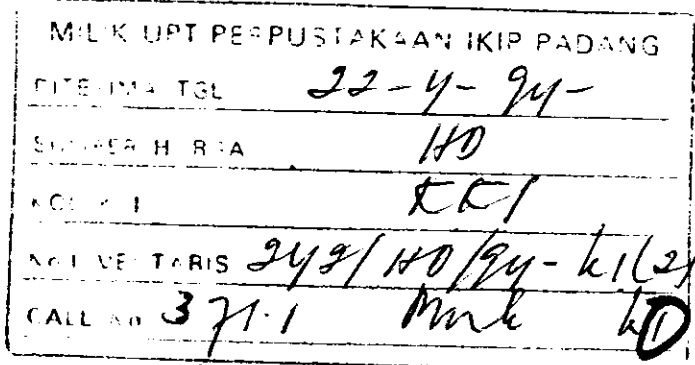 MILIK UPT PERPUSTAKAAN IKIP PADANG
DITERIMA TGL 22-4-94-
SUMBER HARGA HD
KOLEKSI KKI
No INVENTARIS 242/HD/94-k1(2)
CALL No 371.1